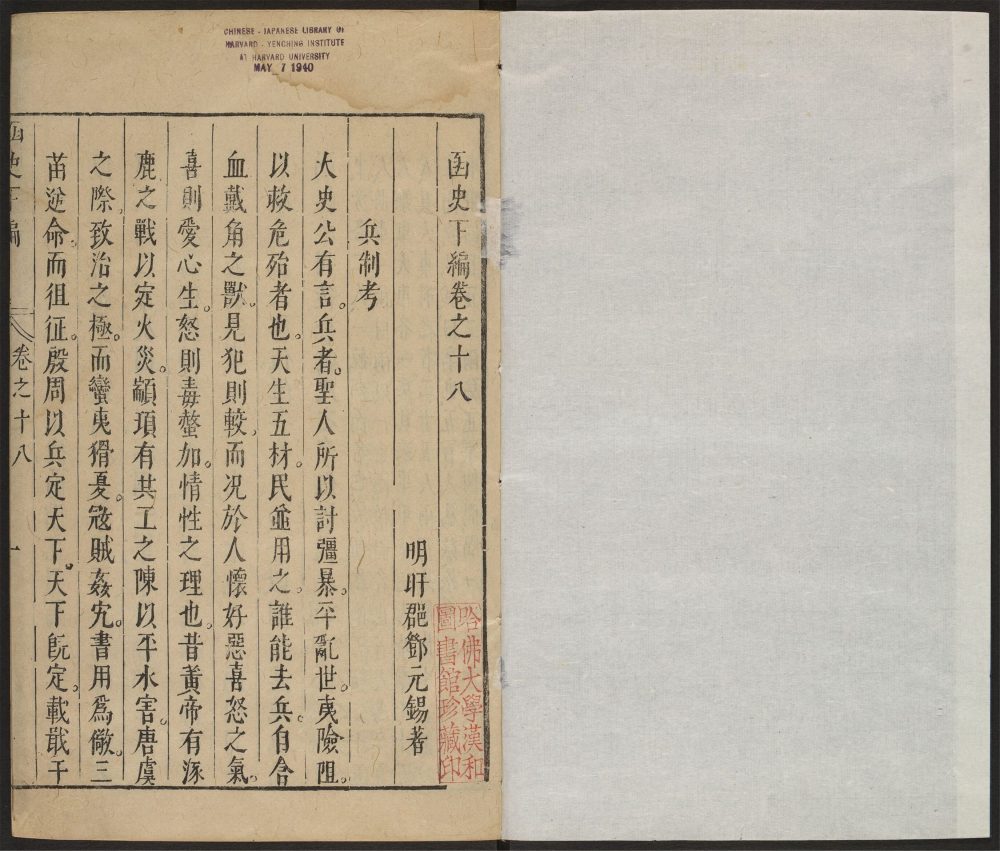 CHINESE - JAPANESE LIBRARY OF
HARVARD - YENCHING INSTITUTE
AT HARVARD UNIVERSITY
MAY 7 1940
函史下編卷之十八
明盱郡鄧元錫著
哈佛大學漢和
圖書館珍藏印
兵制考
大史公有言。兵者。聖人所以討彊暴。平亂世。夷險阻。
以救危殆者也。天生五材。民並用之。誰能去兵。自含
血戴角之獸。見犯則較。而况於人懷好惡喜怒之氣。
喜則愛心生。怒則毒螫加。情性之理也。昔黃帝有涿
鹿之戰以定火災。顓頊有共工之陳以平水害。唐虞
之際。致治之極。而蠻夷猾憂。㓂賊姦宄。書用爲儆。三
苗逆命。而徂征。殷周以兵定天下。天下旣定。載戢干
函史下編
卷之十八
一